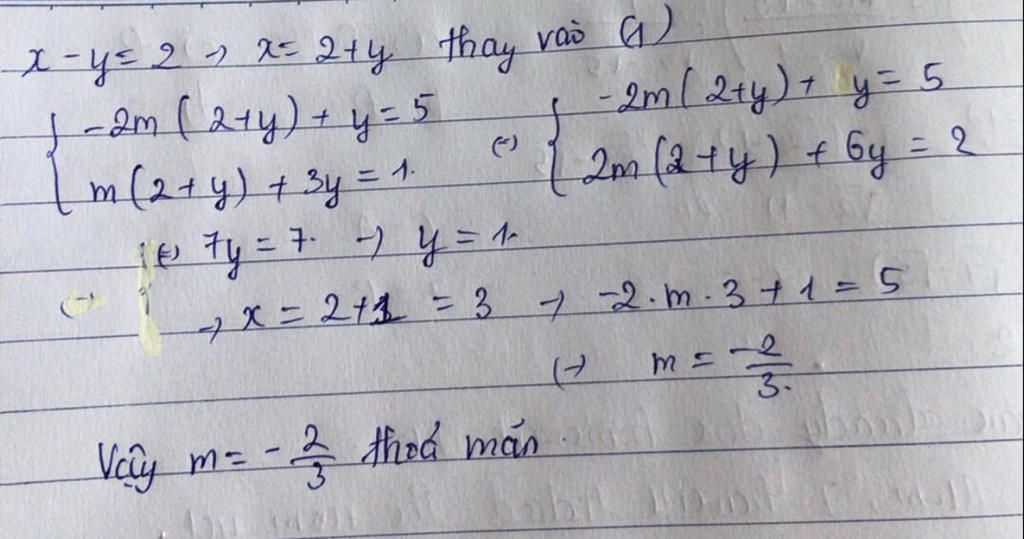 x - y = 2 → x = 2 + y thay vào (1)
{ -2m ( 2 + y ) + y = 5 (-) { -2m ( 2 + y ) + y = 5
m ( 2 + y ) + 3y = 1. 2m ( 2 + y ) + 6y = 2
(-) 7y = 7. → y = 1.
(-) → x = 2 + 1 = 3 → -2 . m . 3 + 1 = 5
(-) m = -2/3.
Vậy m = - 2/3 thoả mãn.